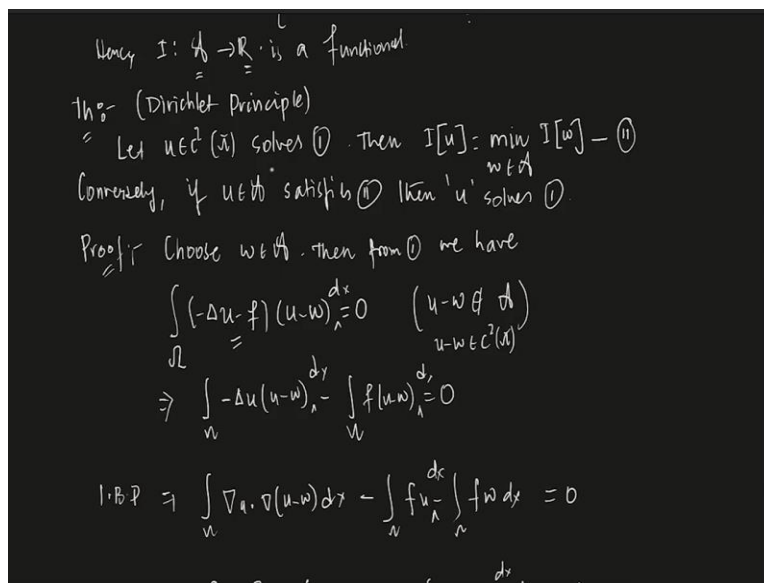 Hence I: A → R is a functional.
Th:- (Dirichlet Principle)
Let u∈C²(Ω̄) solves ①. Then I[u] = min I[w] — ⑪
w∈A
Conversely, if u∈A satisfies ⑪ then 'u' solves ①.
Proof:- Choose w∈A. then from ① we have
∫_Ω (-Δu-f)(u-w) dx = 0 (u-w ∉ A)
u-w∈C²(Ω̄)
⇒ ∫_Ω -Δu(u-w) dx - ∫_Ω f(u-w) d, = 0
I.B.P ⇒ ∫_Ω ∇u.∇(u-w)dx - ∫_Ω fu dx - ∫_Ω fw dx = 0
dx